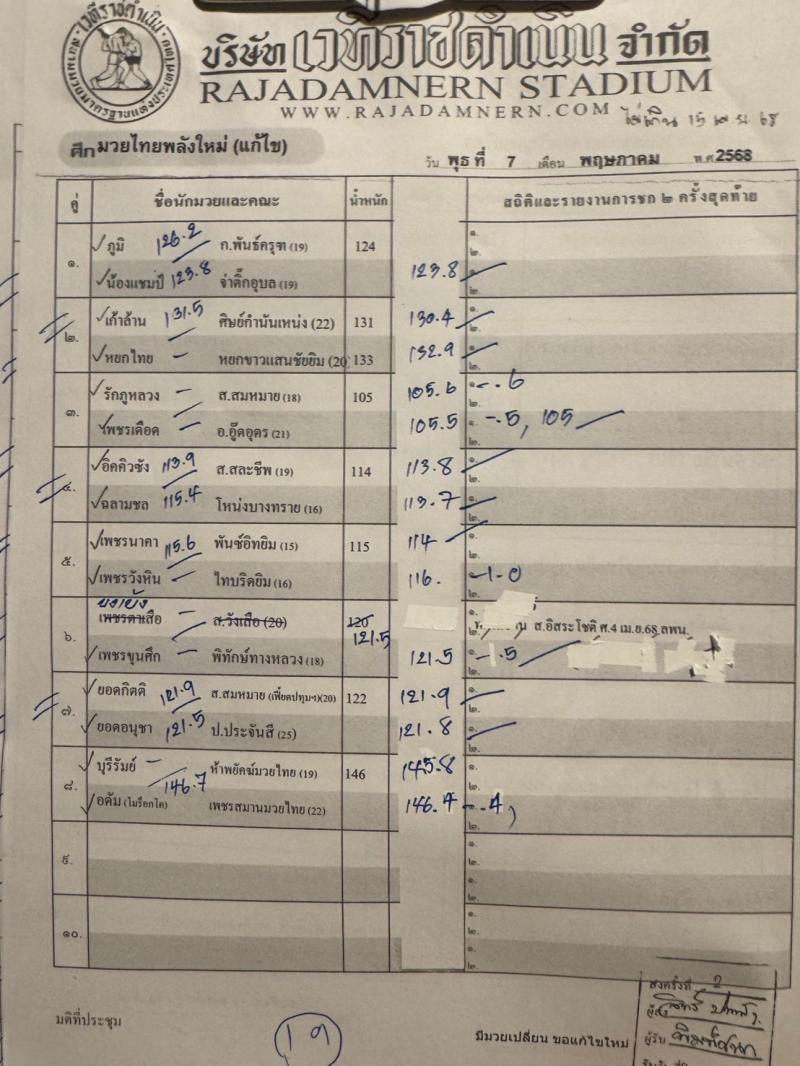 บริษัท เวทีราชดำเนิน จำกัด
RAJADAMNERN STADIUM
WWW.RAJADAMNERN.COM
ศึกมวยไทยพลังใหม่ (แก้ไข)
วัน พุธ ที่ 7 เดือน พฤษภาคม พ.ศ 2568
คู่ ชื่อนักมวยและคณะ น้ำหนัก สถิติและรายงานการชก ๒ ครั้งสุดท้าย
๑. ภูมิ 126.2 ก.พันธ์ครุฑ (19) 124
น้องแชมป์ 123.8 จ่าติ๊กอุบล (19) 123.8
๒. เก้าล้าน 131.5 ศิษย์กำนันเหน่ง (22) 131 130.4
หยกไทย หยกขาวแสนชัยยิม (20 133 132.9
๓. รักภูหลวง ส.สมหมาย (18) 105 105.6 - .6
เพชรเดือด อ.อู๊ดอุดร (21) 105.5 - .5, 105
๔. อิคคิวซัง 113.9 ส.สละชีพ (19) 114 113.8
ฉลามชล 115.4 โหน่งบางทราย (16) 113.7
๕. เพชรนาคา 115.6 พันช์อิทยิม (15) 115 114
เพชรวังหิน ไทบริดยิม (16) 116. -1-0
๖. เพชรดาเสือ ส.วังเสือ (20) 120 121.5
ส.อิสระโชติ ศ.4 เม.ย.68 ลพน.
เพชรขุนศึก พิทักษ์ทางหลวง (18) 121.5 - .5
๗. ยอดกิตติ 121.9 ส.สมหมาย (เพี้ยดปทุมฯ)(20) 122 121.9
ยอดอนุชา 121.5 ป.ประจันสี (25) 121.8
๘. บุรีรัมย์ ห้าพยัคฆ์มวยไทย (19) 146 145.8
146.7
อคัม (โมร็อกโค) เพชรสมานมวยไทย (22) 146.4 - .4
๙.
๑๐.
มติที่ประชุม
19
มีมวยเปลี่ยน ขอแก้ไขใหม่
ส่งครั้งที่ 2
ผู้รับ